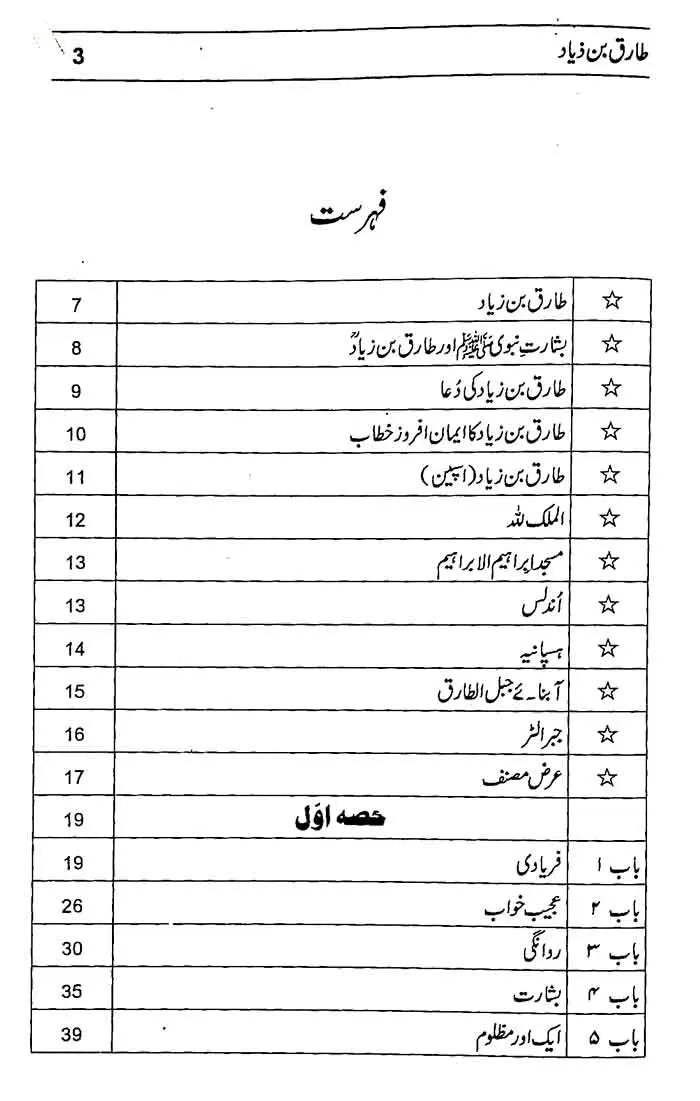 طارق بن زیاد 3
فہرست
☆ طارق بن زیاد 7
☆ بشارتِ نبوی ﷺ اور طارق بن زیادؒ 8
☆ طارق بن زیاد کی دُعا 9
☆ طارق بن زیاد کا ایمان افروز خطاب 10
☆ طارق بن زیاد (اسپین) 11
☆ الملک للہ 12
☆ مسجد ابراہیم الابراہیم 13
☆ اُندلس 13
☆ ہسپانیہ 14
☆ آبنائے جبل الطارق 15
☆ جبرالٹر 16
☆ عرض مصنف 17
حصہ اوّل 19
باب ۱ فریادی 19
باب ۲ عجیب خواب 26
باب ۳ روانگی 30
باب ۴ بشارت 35
باب ۵ ایک اور مظلوم 39